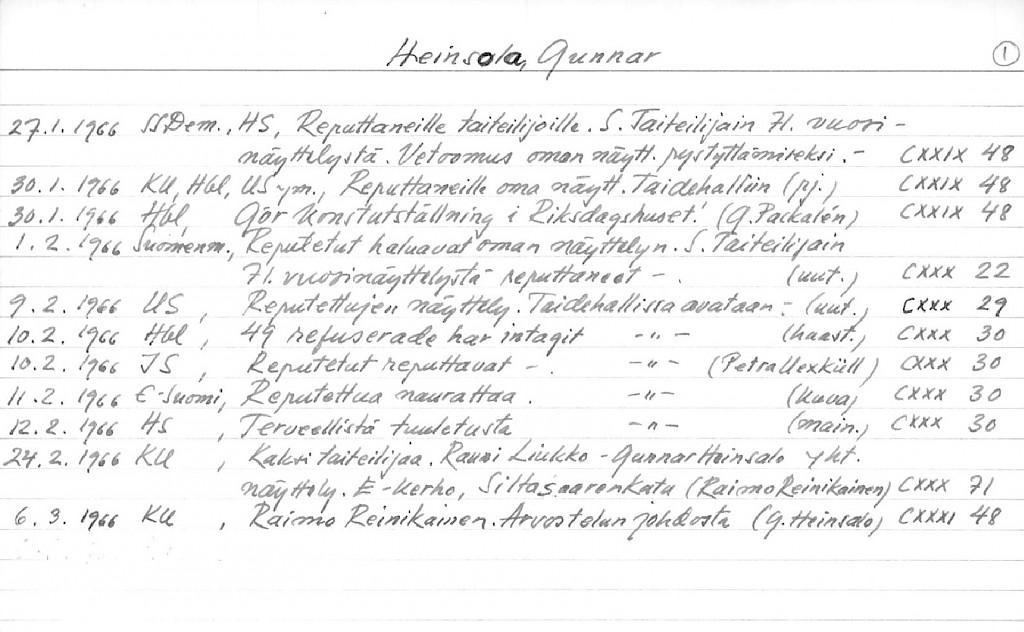 Heinsola, Gunnar 1
27.1.1966 SSDem., HS, Reputtaneille taiteilijoille. S. Taiteilijain 71. vuosi-
näyttelystä. Vetoomus oman näytt. pystyttämiseksi. - CXXIX 48
30.1.1966 KU, Hbl, US ym., Reputtaneille oma näytt. Taidehalliin (pj.) CXXIX 48
30.1.1966 Hbl, Gör konstutställning i Riksdagshuset! (G. Packalén) CXXIX 48
1.2.1966 Suomenm., Reputetut haluavat oman näyttelyn. S. Taiteilijain
71. vuosinäyttelystä reputtaneet - . (uut.) CXXX 22
9.2.1966 US, Reputettujen näyttely. Taidehallissa avataan - (uut.) CXXX 29
10.2.1966 Hbl, 49 refuserade har intagit -"- (haast.) CXXX 30
10.2.1966 IS, Reputetut reputtavat - . -"- (Petra Uexküll) CXXX 30
11.2.1966 E-Suomi, Reputettua naurattaa. -"- (kuva) CXXX 30
12.2.1966 HS, Terveellistä tuuletusta -"- (main.) CXXX 30
24.2.1966 KU, Kaksi taiteilijaa. Rauni Liukko - Gunnar Heinsalo yht.
näyttely. E-kerho, Siltasaarenkatu (Raimo Reinikainen) CXXX 71
6.3.1966 KU, Raimo Reinikainen. Arvostelun johdosta (G. Heinsalo) CXXXI 48